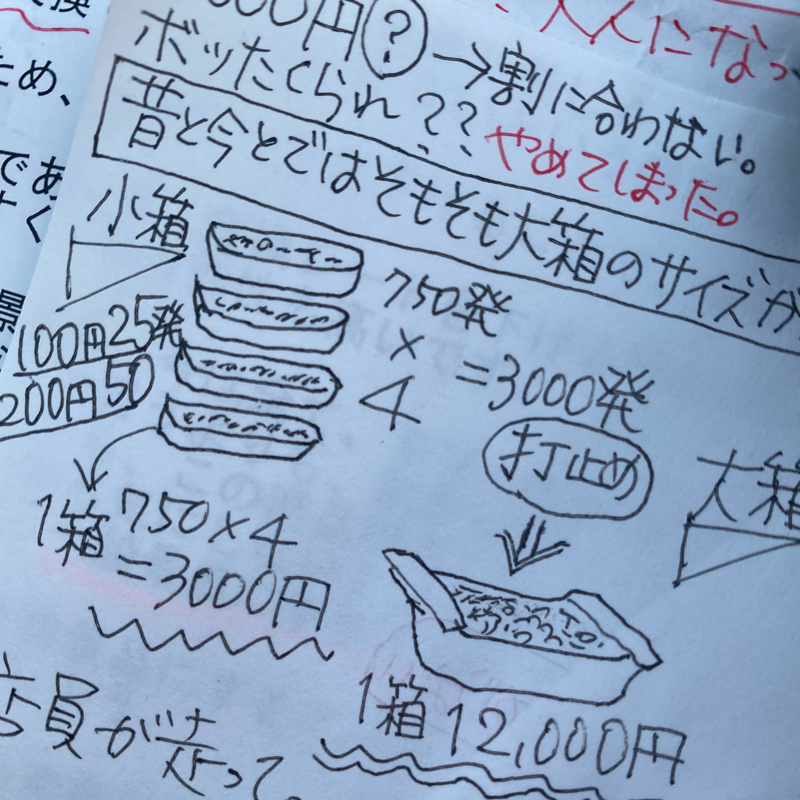 換
ため、
であ
なく
景
大人になっ
000円?→割に合わない。
ボッたくられ??やめてしまった。
昔と今とではそもそも大箱のサイズが
小箱
750発
×
4
=3000発
100円25発
200円50
打止め
大箱
1箱750×4
=3000円
1箱12,000円
店員が走って。